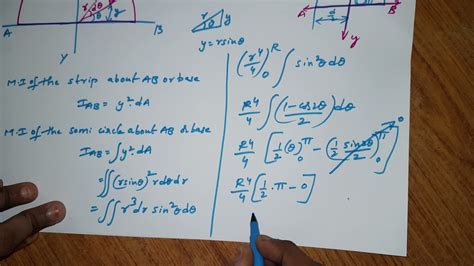 A
B
Y
r
dθ
θ
y
θ
y
y = r sin θ
A
B
Y
M.I of the strip about AB or base
I_AB = y² dA
M.I of the semi circle about AB or base
I_AB = ∫ y² dA
= ∬ (r sin θ)² r dθ dr
= ∬ r³ dr sin² θ dθ
(r⁴/4)₀^R ∫ sin² θ dθ
R⁴/4 ∫ (1 - cos 2θ)/2 dθ
R⁴/4 [ 1/2 (θ)₀^π - (1/2 sin 2θ/2)₀^π ] 0
R⁴/4 [ 1/2 · π - 0 ]